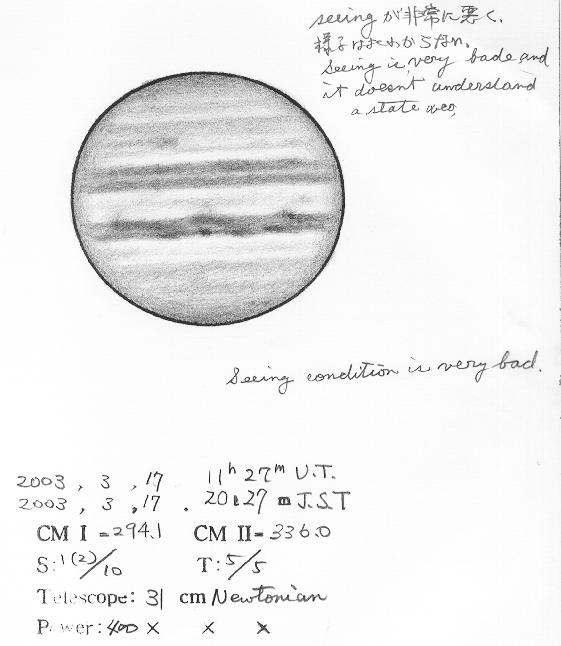 seeing が非常に悪く、
様子はよくわからない。
Seeing is very bade and
it doesn't understand
a state
Seeing condition is very bad.
2003 , 3 , 17 11h 27m U.T.
2003 , 3 , 17 . 20 27 m J.S.T
CM I = 294.1 CM II = 336.0
S: 1(2)/10 T: 5/5
Telescope: 31 cm Newtonian
Power: 400 × × ×